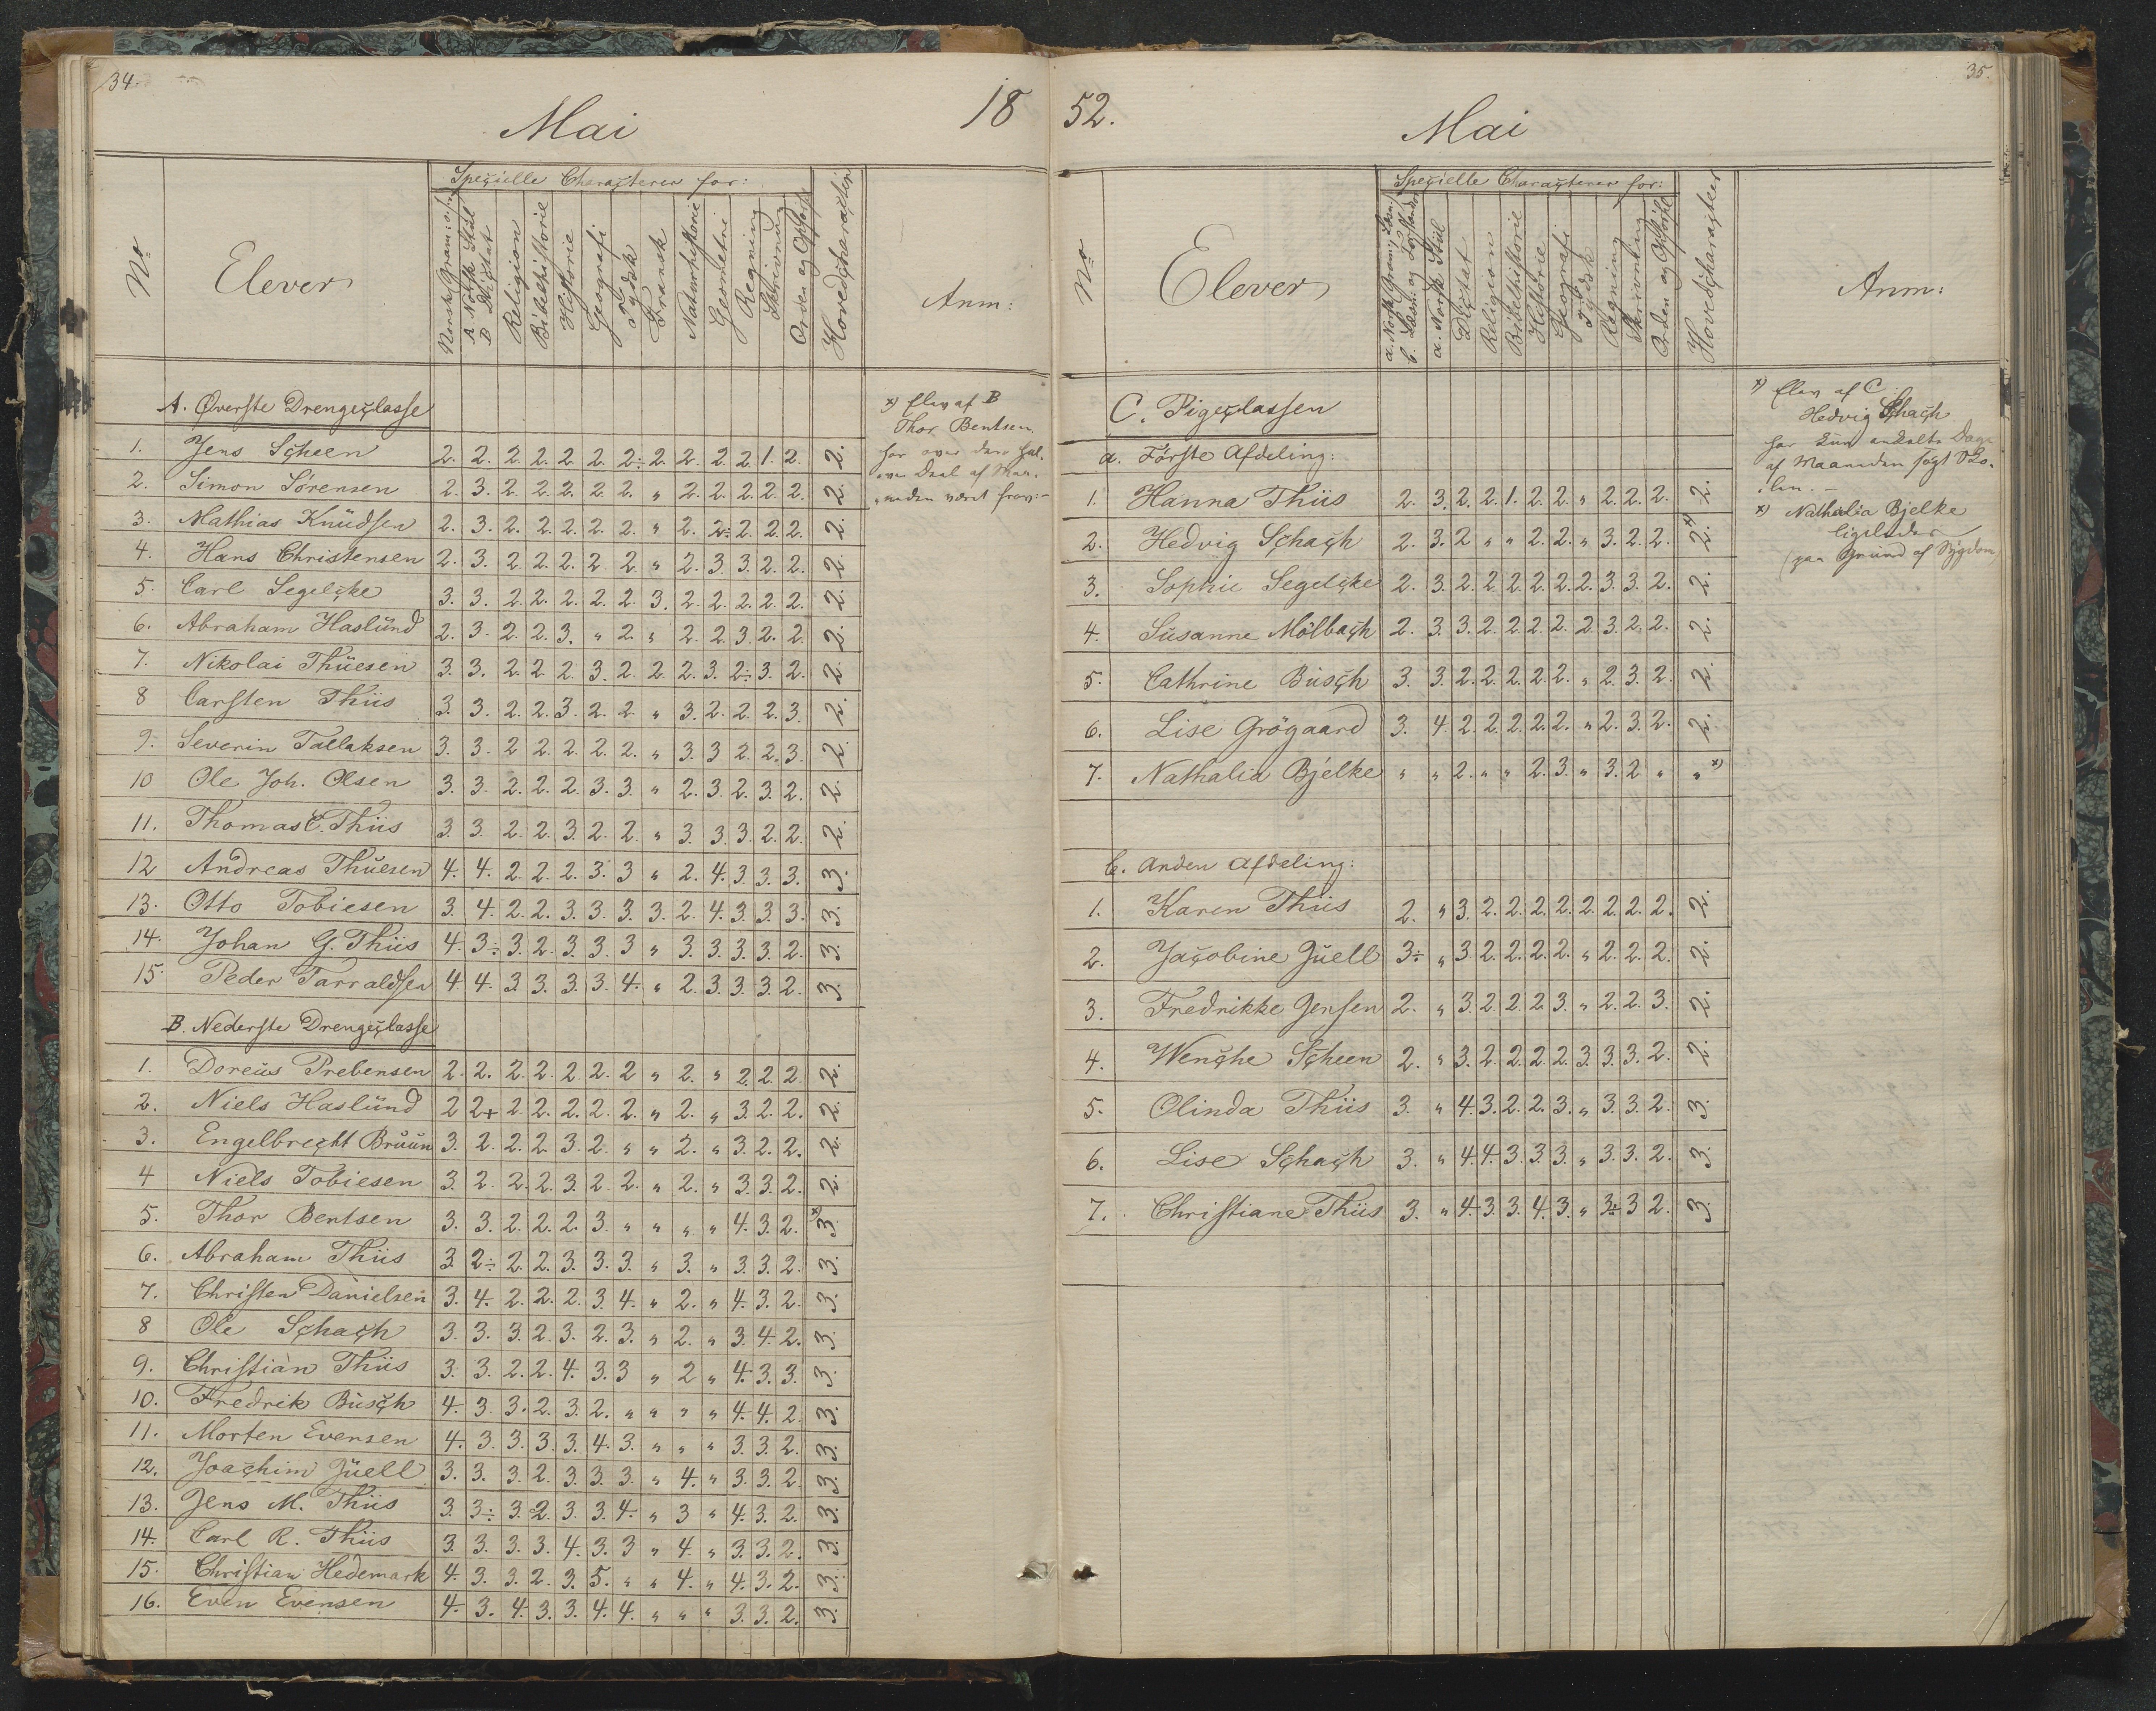 34.
Mai
18
Nº
Elever
Specielle Characterer for:
Norsk Gram:
A Norsk Stiil
B Dictat
Religion
Bibelhistorie
Historie
Geografi
Tydsk
Fransk
Naturhistorie
Geometrie
Regning
Skrivning
Orden og Opførsel
Hovedcharacteer
Anm:
A. Øverste Drengeclasse
1. Jens Scheen 2. 2. 2. 2. 2. 2. 2÷ 2. 2. 2. 2. 1. 2. 2.
2. Simon Sörensen 2. 3. 2. 2. 2. 2. 2. " 2. 2. 2. 2. 2. 2.
3. Mathias Knudsen 2. 3. 2. 2. 2. 2. 2. " 2. 2÷ 2. 2. 2. 2.
4. Hans Christensen 2. 3. 2. 2. 2. 2. 2 " 2. 3. 3. 2. 2. 2.
5. Carl Segelcke 3. 3. 2. 2. 2. 2. 2. 3. 2. 2. 2. 2. 2. 2.
6. Abraham Haslund 2. 3. 2. 2. 3. " 2. " 2. 2. 3. 2. 2. 2.
7. Nikolai Thuesen 3. 3. 2. 2. 2. 3. 2. 2. 2. 3. 2÷ 3. 2. 2.
8 Carsten Thiis 3. 3. 2. 2. 3. 2. 2. " 3. 2. 2. 2. 3. 2.
9. Severin Tallaksen 3. 3. 2 2. 2. 2. 2. " 3. 3 2. 2. 3. 2.
10 Ole Joh. Olsen 3. 3. 2. 2. 2. 3. 3. " 2. 3. 2. 3. 2. 2.
11. Thomas C. Thiis 3. 3. 2. 2. 3. 2. 2. " 3. 3. 3. 2. 2. 2.
12 Andreas Thuesen 4. 4. 2. 2. 2. 3. 3 " 2. 4. 3. 3. 3. 3.
13. Otto Tobiesen 3. 4. 2. 2. 3. 3. 3. 3. 2. 4. 3. 3. 3. 3.
14. Johan G. Thiis 4. 3÷ 3. 2. 3. 3. 3 " 3. 3. 3. 3. 2. 3.
15. Peder Tarraldsen 4. 4. 3. 3. 3. 3. 4. " 2. 3. 3. 3. 2. 3.
B. Nederste Drengeclasse
1. Doreus Prebensen 2. 2. 2. 2. 2. 2. 2 " 2. " 2. 2. 2. 2.
2. Niels Haslund 2 2+ 2. 2. 2. 2. 2. " 2. " 3. 2. 2. 2.
3. Engelbrecht Bruun 3. 2. 2. 2. 3. 2. " " 2. " 3. 2. 2. 2.
4 Niels Tobiesen 3. 2. 2. 2. 3. 2. 2. " 2. " 3. 3. 2. 2.
5. Thor Bentsen 3. 3. 2. 2. 2. 3. " " " " 4. 3. 2. x) 3.
6. Abraham Thiis 3. 2÷ 2. 2. 3. 3. 3. " 3. " 3. 3. 2. 3.
7. Christen Danielsen 3. 4. 2. 2. 2. 3. 4. " 2. " 4. 3. 2. 3.
8 Ole Schach 3. 3. 3. 2. 3. 2. 3. " 2. " 3. 4. 2. 3.
9. Christian Thiis 3. 3. 2. 2. 4. 3. 3 " 2 " 4. 3. 3. 3.
10. Fredrik Busch 4. 3. 3. 2. 3. 2. " " " " 4. 4. 2. 3.
11. Morten Evensen 4. 3. 3. 3. 3. 4. 3. " " " 3. 3. 2. 3.
12. Joachim Juell 3. 3. 3. 2. 3. 3. 3. " 4. " 3. 3. 2. 3.
13. Jens M. Thiis 3. 3÷ 3. 2. 3. 3. 4. " 3 " 4. 3. 2. 3.
14. Carl R. Thiis 3. 3. 3. 3. 4. 3. 3 " 4. " 3. 3. 2. 3.
15. Christian Hedemark 4. 3. 3. 2. 3. 5. " " 4. " 4. 3. 2. 3.
16. Even Evensen 4. 3. 4. 3. 3. 4. 4. " " " 3. 3. 2. 3.
x) Elev af B
Thor Bentsen
har over den hal-
ve Deel af Maa-
neden været frav:-
35.
52.
Mai
Nº
Elever
Specielle Characterer for:
a. Norsk Gram:
b. Læsn: og Forstand
a. Norsk Stiil
Dictat
Religion
Bibelhistorie
Historie
Geografi
Tydsk
Regning
Skrivning
Orden og Opførsel
Hovedcharacteer
Anm:
C. Pigeclassen
a. Förste Afdeling:
1. Hanna Thiis 2. 3. 2. 2. 1. 2. 2. " 2. 2. 2. 2.
2. Hedvig Schach 2. 3. 2 " " 2. 2. " 3. 2. 2. 2. x)
3. Sophie Segelcke 2. 3. 2. 2. 2. 2. 2. 2. 3. 3. 2. 2.
4. Susanne Mölbach 2. 3. 3. 2. 2. 2. 2. 2. 3. 2. 2. 2.
5. Cathrine Busch 3. 3. 2. 2. 2. 2. 2. " 2. 3. 2. 2.
6. Lise Grögaard 3. 4. 2. 2. 2. 2. 2. " 2. 3. 2. 2.
7. Nathalia Bjelke " " 2. " " 2. 3. " 3. 2 " " x)
b. Anden Afdeling:
1. Karen Thiis 2. " 3. 2. 2. 2. 2. 2. 2. 2. 2. 2.
2. Jacobine Juell 3÷ " 3. 2. 2. 2. 2. " 2. 2. 2. 2.
3. Fredrikke Jensen 2. " 3. 2. 2. 2. 3. " 2. 2. 3. 2.
4. Wenche Scheen 2. " 3. 2. 2. 2. 2. 3. 3. 3. 2. 2.
5. Olinda Thiis 3. " 4. 3. 2. 2. 3. " 3. 3. 2. 3.
6. Lise Schach 3. " 4. 4. 3. 3. 3. " 3. 3. 2. 3.
7. Christiane Thiis 3. " 4. 3. 3. 4. 3. " 3÷ 3 2. 3.
x) Elev af C
Hedvig Schach
har kun enkelte Dage
af Maaneden søgt Sko-
len. -
x) Nathalia Bjelke
ligeledes
(paa Grund af Sygdom)